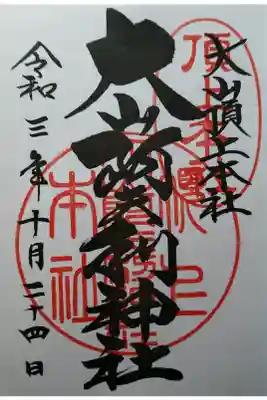 大山頂上本社
大山阿夫利神社
令和三年十月二十四日
本社